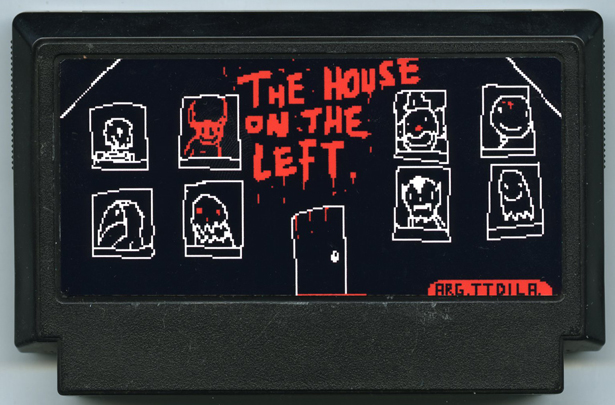 THE HOUSE
ON THE
LEFT.
ARG.TTDILA.